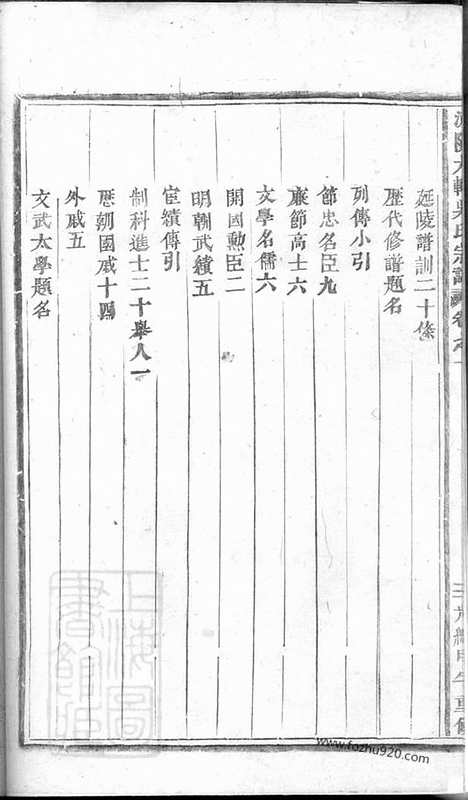 延陵譜訓二十條
歷代修譜題名
列傳小引
節忠名臣九
廉節高士六
文學名儒六
開國勲臣二
明朝武績五
宦績傳引
制科進士二十舉人一
歷朝國戚十四
外戚五
文武太學題名
上海圖書館藏
www.fozhu920.com